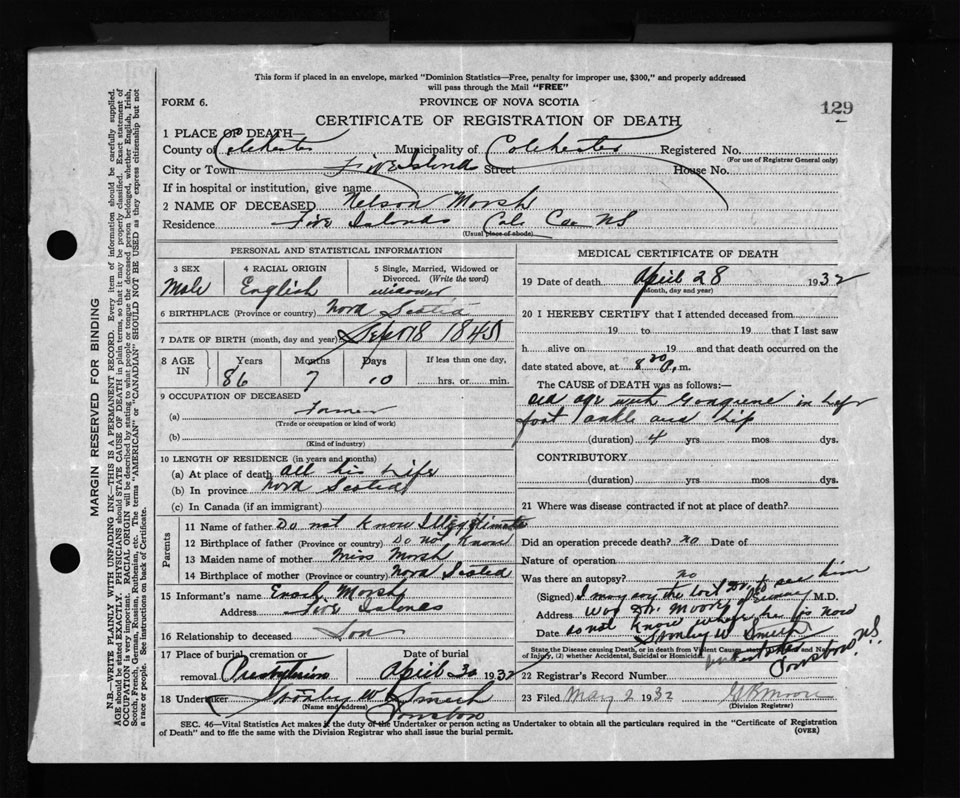 This form if placed in an envelope, marked "Dominion Statistics—Free, penalty for improper use, $300," and properly addressed
will pass through the Mail "FREE"
FORM 6.
PROVINCE OF NOVA SCOTIA
129
CERTIFICATE OF REGISTRATION OF DEATH
1 PLACE OF DEATH
County of Colchester Municipality of Colchester Registered No.
(For use of Registrar General only)
City or Town Five Islond Street House No.
If in hospital or institution, give name
2 NAME OF DECEASED Nelson Morsh
Residence Five Islonds Col. Co NS
(Usual place of abode)
PERSONAL AND STATISTICAL INFORMATION
3 SEX 4 RACIAL ORIGIN 5 Single, Married, Widowed or
Divorced. (Write the word)
Male English widower
6 BIRTHPLACE (Province or country) Nova Scotia
7 DATE OF BIRTH (month, day and year) Sept 18 1845
8 AGE IN Years Months Days If less than one day,
86 7 10 hrs. or min.
9 OCCUPATION OF DECEASED
(a) Farmer
(Trade or occupation or kind of work)
(b)
(Kind of industry)
10 LENGTH OF RESIDENCE (in years and months)
(a) At place of death all his Life
(b) In province Nova Scotia
(c) In Canada (if an immigrant)
Parents
11 Name of father Do not Know
12 Birthplace of father (Province or country) Do not Know
13 Maiden name of mother Miss Morsh
14 Birthplace of mother (Province or country) Nova Scotia
15 Informant's name Enoch Morsh
Address Five Islones
16 Relationship to deceased Son
17 Place of burial, cremation or Date of burial
removal Presbyterian April 30 1932
18 Undertaker Stanley W Smith
(Name and address)
MEDICAL CERTIFICATE OF DEATH
19 Date of death April 28 1932
(Month, day and year)
20 I HEREBY CERTIFY that I attended deceased from
19 to 19 that I last saw
h alive on 19 and that death occurred on the
date stated above, at 8.30 a.m.
The CAUSE of DEATH was as follows:—
old age with Gangrene in Left
foot ankle and hip
(duration) 4 yrs. mos. dys.
CONTRIBUTORY
(duration) yrs. mos. dys.
21 Where was disease contracted if not at place of death?
Did an operation precede death? no Date of
Nature of operation
Was there an autopsy? no
(Signed) I may say the last Dr. to see him M.D.
Address was Dr. Moore of
Date do not know where he is now
Stanley W Smith
State the Disease causing Death, or in death from Violent Causes, state (1) Means and Nature
of Injury, (2) whether Accidental, Suicidal or Homicidal.
undertaker
N.S.
22 Registrar's Record Number
23 Filed May 2 1932
(Division Registrar)
SEC. 46—Vital Statistics Act makes it the duty of the Undertaker or person acting as Undertaker to obtain all the particulars required in the "Certificate of Registration
of Death" and to file the same with the Division Registrar who shall issue the burial permit.
(OVER)
MARGIN RESERVED FOR BINDING
N.B.—WRITE PLAINLY WITH UNFADING INK—THIS IS A PERMANENT RECORD. Every item of information should be carefully supplied.
AGE should be stated EXACTLY. PHYSICIANS should STATE CAUSE OF DEATH in plain terms, so that it may be properly classified. Exact statement of
OCCUPATION is very important. RACIAL ORIGIN will be described by stating to what people or tongue the deceased person belonged, whether English, Irish,
Scotch, French, German, Russian, Ruthenian, etc. The terms "AMERICAN" or "CANADIAN" SHOULD NOT BE USED as they express citizenship but not
a race or people. See instructions on back of Certificate.